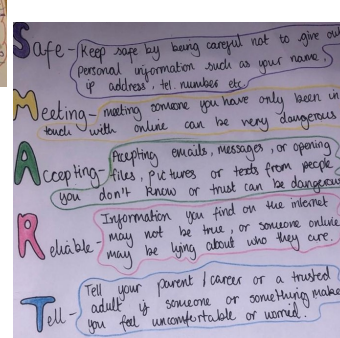 Safe - Keep safe by being careful not to give out
personal information such as your name,
ip address, tel. number etc.
Meeting - meeting someone you have only been in
touch with online can be very dangerous
Accepting - Accepting emails, messages, or opening
files, pictures or texts from people
you don't know or trust can be dangerous
Reliable - Information you find on the internet
may not be true, or someone online
may be lying about who they are.
Tell - Tell your parent / career or a trusted
adult if someone or something make
you feel uncomfortable or worried.